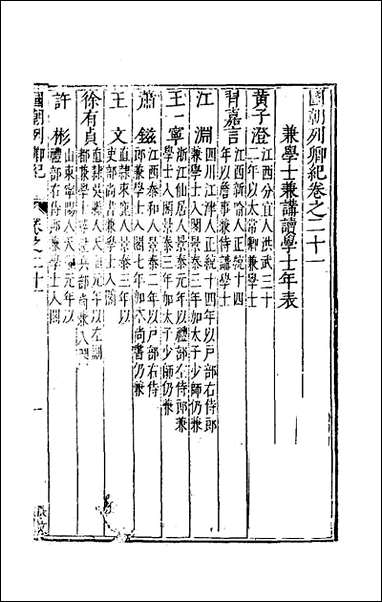 國朝列卿紀卷之二十一
兼學士兼講讀學士年表
黃子澄
江西分宜人洪武三十
二年以太常卿兼學士
習嘉言
江西新喻人正統十四
年以詹事兼侍講學士
江淵
四川江津人正統十四年以戶部右侍郎
兼學士入閣景泰三年加太子少師仍兼
王一寧
浙江仙居人景泰元年以禮部左侍郎兼
學士入閣景泰三年加太子少師仍兼
蕭鎡
江西泰和人景泰二年以戶部右侍
郎兼學士入閣七年加尚書仍兼
王文
直隸束鹿人景泰三年以
吏部尚書兼學士入閣
徐有貞
直隸吳縣人天順元年以左副
都兼學士陞兵部尚兼入閣
許彬
山東寧陽人天順元年以
禮部右侍郎兼學士入閣
國朝列卿紀
卷之二十一
一